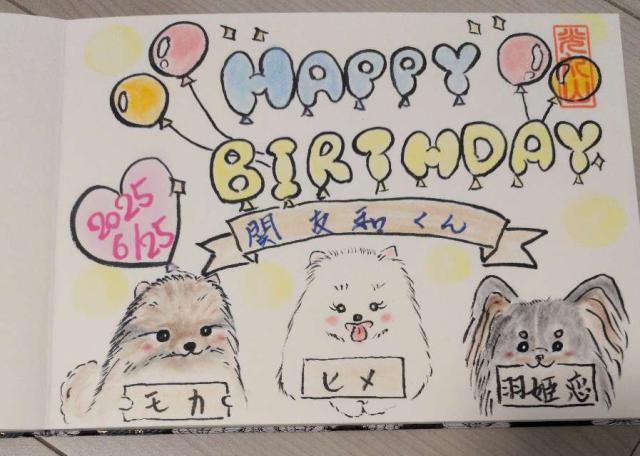 HAPPY
BIRTHDAY
2025
6/25
関友和くん
モカ
ヒメ
羽姫恋